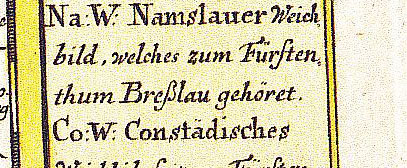 Na:W: Namslauer Weich
bild, welches zum Fürsten,
thum Breßlau gehöret.
Co:W: Constädisches